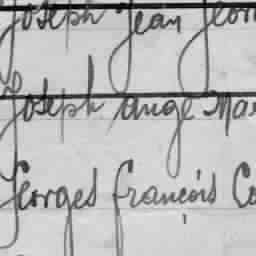 Joseph Jean Geor
Joseph Ange Mar
Georges François Co